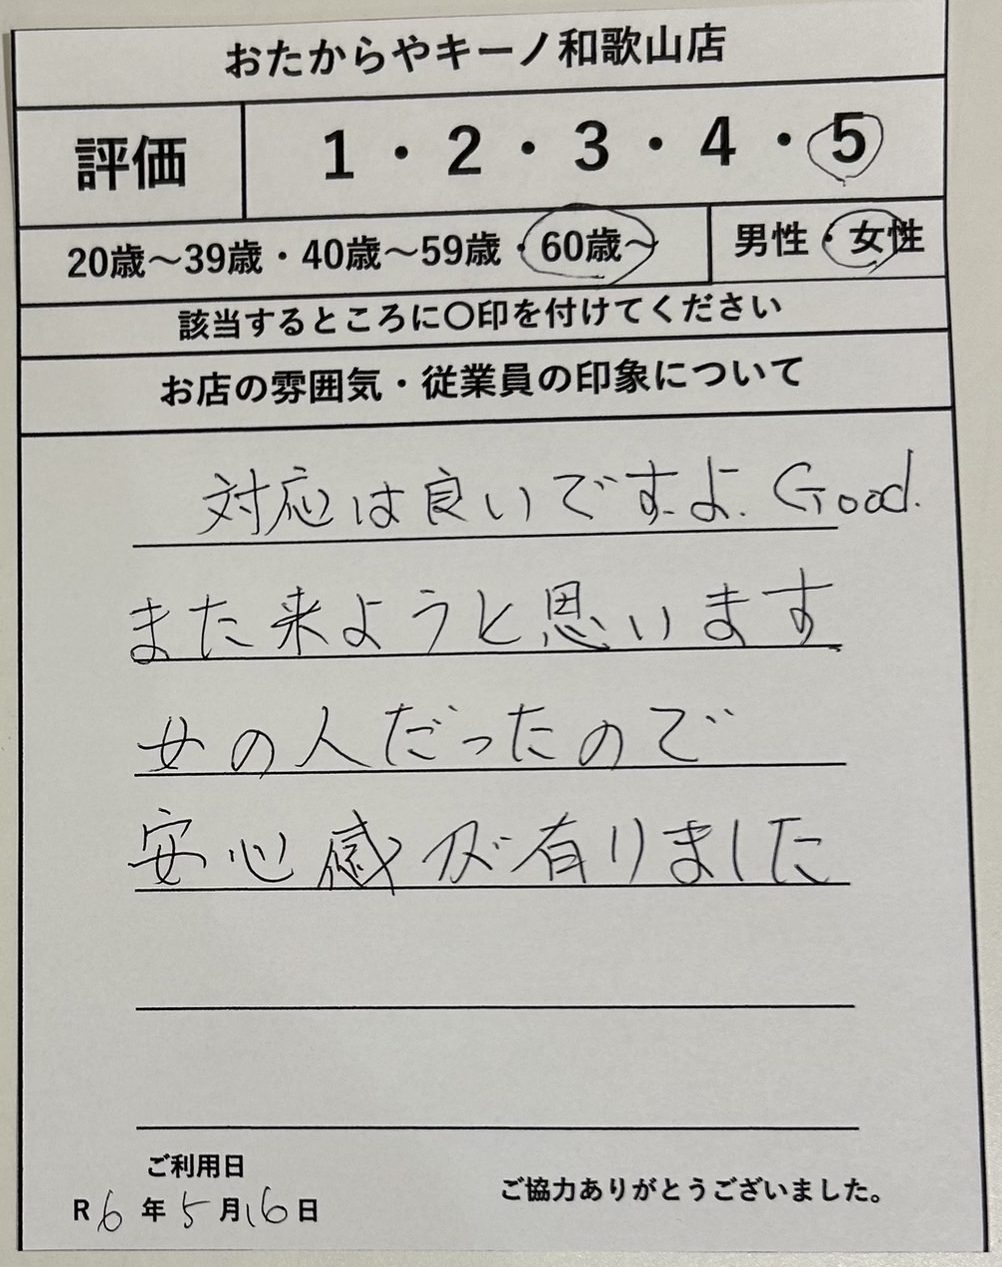 おたからやキーノ和歌山店
評価 1・2・3・4・5
20歳～39歳・40歳～59歳・60歳～ 男性・女性
該当するところに〇印を付けてください
お店の雰囲気・従業員の印象について
対応は良いですよ. Good.
また来ようと思います
女の人だったので
安心感が有りました
ご利用日
R6年5月16日
ご協力ありがとうございました。